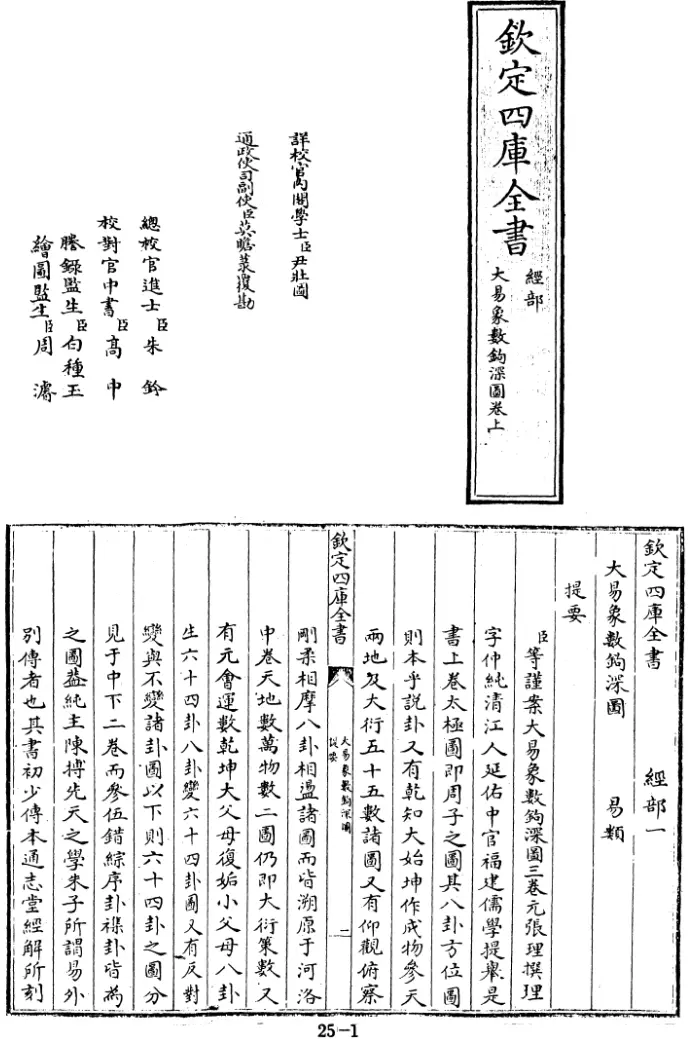 欽定四庫全書
經部
大易象數鉤深圖卷上
詳校官內閣學士臣尹壯圖
通政使司副使臣莫瞻菉覆勘
總校官進士臣朱鈐
校對官中書臣高中
謄錄監生臣白種玉
繪圖監生臣周瀋
欽定四庫全書 經部一
大易象數鉤深圖 易類
提要
臣等謹案大易象數鉤深圖三卷元張理撰理
字仲純清江人延佑中官福建儒學提舉是
書上卷太極圖即周子之圖其八卦方位圖
則本乎說卦又有乾知大始坤作成物參天
兩地及大衍五十五數諸圖又有仰觀俯察
欽定四庫全書
大易象數鉤深圖
提要
二
剛柔相摩八卦相盪諸圖而皆溯原于河洛
中卷天地數萬物數二圖仍即大衍策數又
有元會運數乾坤大父母復姤小父母八卦
生六十四卦八卦變六十四卦圖又有反對
變與不變諸卦圖以下則六十四卦之圖分
見于中下二卷而參伍錯綜序卦襍卦皆為
之圖葢純主陳摶先天之學朱子所謂易外
別傳者也其書初少傳本通志堂經解所刻
25-1